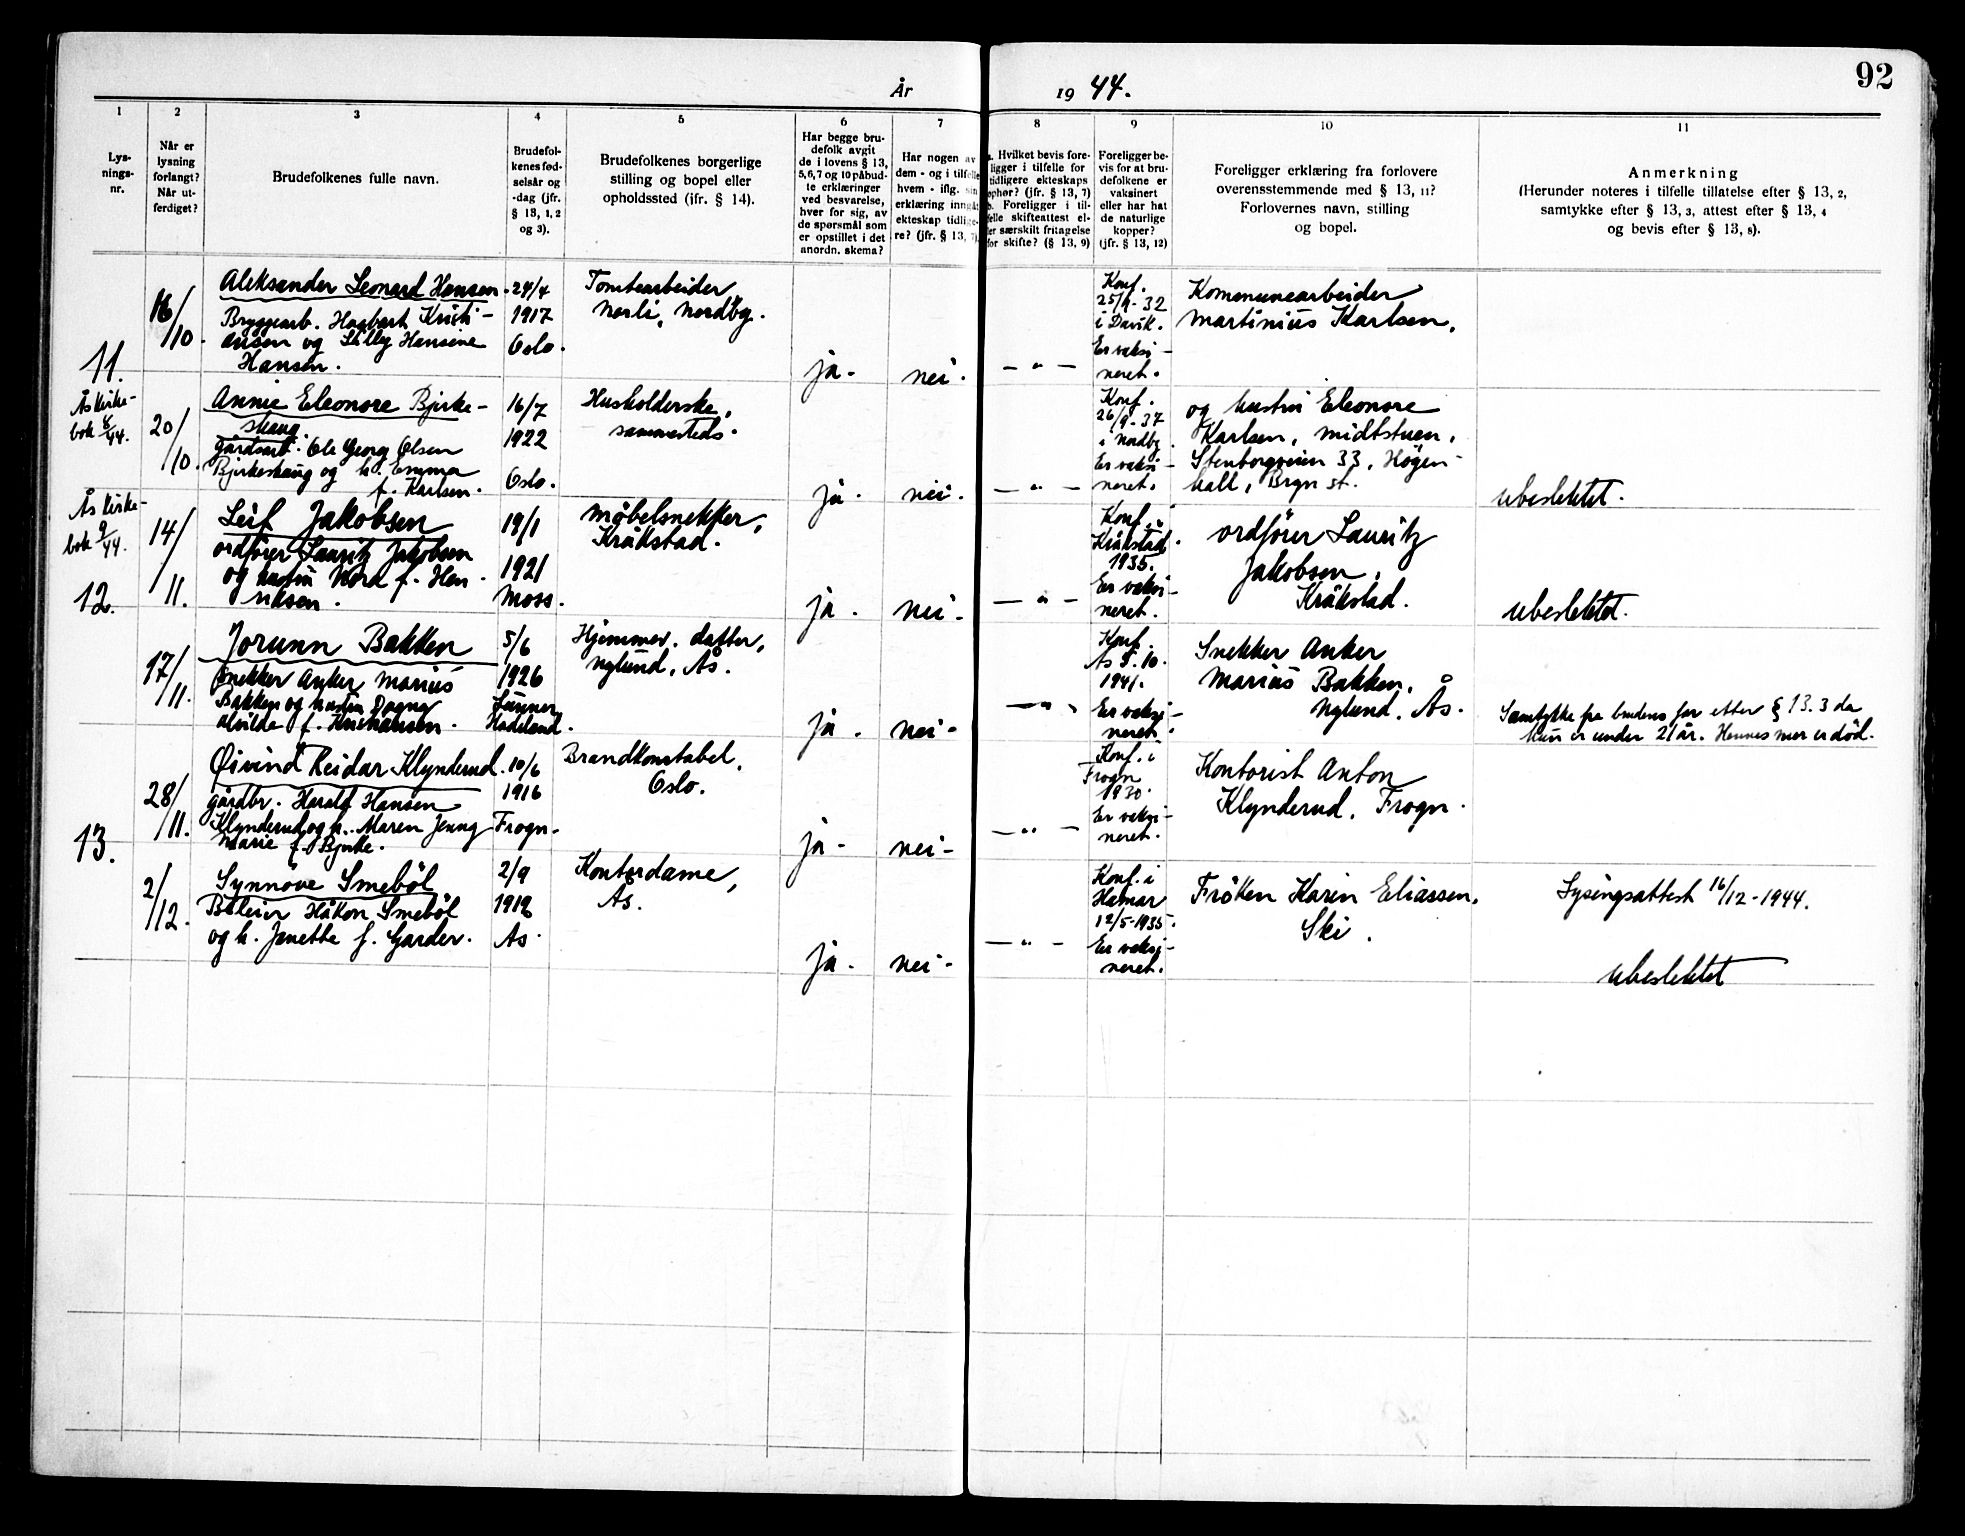 År 19 44.
92
1
Lys-
nings-
nr.
2
Når er
lysning
forlangt?
Når ut-
ferdiget?
3
Brudefolkenes fulle navn.
4
Brudefol-
kenes fød-
selsår og
-dag (jfr.
§ 13, 1, 2
og 3).
5
Brudefolkenes borgerlige
stilling og bopel eller
opholdssted (ifr. § 14).
6
Har begge bru-
defolk avgit
de i lovens § 13,
5,6,7 og 10 påbud-
te erklæringer
ved besvarelse,
hver for sig, av
de spørsmål som
er opstillet i det
anordn. skema?
7
Har nogen av
dem - og i tilfelle
hvem - iflg. sin
erklæring inngåt
ekteskap tidlige-
re? (jfr. § 13, 7)
8
a. Hvilket bevis fore-
ligger i tilfelle for
tidligere ekteskaps
ophør? (jfr. § 13, 7)
b. Foreligger i til-
felle skifteattest el-
ler særskilt fritagelse
for skifte? (§ 13, 9)
9
Foreligger be-
vis for at bru-
defolkene er
vaksinert
eller har hat
de naturlige
kopper?
(jfr. § 13, 12)
10
Foreligger erklæring fra forlovere
overensstemmende med § 13, 11?
Forlovernes navn, stilling
og bopel.
11
Anmerkning
(Herunder noteres i tilfelle tillatelse efter § 13, 2,
samtykke efter § 13, 3, attest efter § 13, 4
og bevis efter § 13, 8).
11.
16/10.
Aleksander Leonard Hansen
Bryggearb. Hagbart Kristi-
ansen og Lilly Hansine
Hansen.
24/4
1917
Oslo.
Tomtearbeider
Norli, Nordby.
ja.
nei.
— " —
Konf.
25/9-32
i Davik.
Er vaksi-
neret.
Kommunearbeider
Martinius Karlsen,
Ås kirke-
bok 8/44.
20/10.
Annie Eleonore Bjirke-
skaug
gårdsarb. Ole Georg Olsen
Bjirkeskaug og h. Emma
f. Karlsen.
16/7
1922
Oslo.
Husholderske,
sammesteds.
ja.
nei.
— " —
Konf.
26/9-37
i Nordby
Er vaksi-
neret.
og hustru Eleonore
Karlsen, Midtstuen,
Stenborgveien 33, Høgen-
hall, Bryn st.
ubeslektet.
Ås kirke-
bok 9/44.
12.
14/11.
Leif Jakobsen
ordfører Lauritz Jakobsen
og hustru Nora f. Hen-
riksen.
19/1
1921
Moss.
Møbelsnekker,
Kråkstad.
ja.
nei.
— " —
Konf. i
Kråkstad.
1935.
Er vaksi-
neret.
ordfører Lauritz
Jakobsen,
Kråkstad.
ubeslektet.
17/11.
Jorunn Bakken
snekker Anker Marius
Bakken og hustru Dagny
Alvilde f. Kristiansen.
5/6
1926
Lunner
Hadeland.
Hjemmev. datter,
Nylund, Ås.
ja.
nei.
— " —
Konf.
Ås 5.10.
1941.
Er vaksi-
neret.
Snekker Anker
Marius Bakken,
Nylund, Ås.
Samtykke fra brudens far etter § 13.3 da
hun er under 21 år. Hennes mor er død.
13.
28/11.
Øivind Reidar Klynderud
gårdbr. Harald Hansen
Klynderud og h. Maren Jenny
Marie f. Bjirke.
10/6
1916
Frogn.
Brandkonstabel,
Oslo.
ja.
nei.
— " —
Konf. i
Frogn
1930.
Er vaksi-
neret.
Kontorist Anton
Klynderud, Frogn.
2/12.
Synnöve Smeböl
Håkon Smeböl
og h. Jenette f. Garder.
2/9
As.
Kontordame,
Ås.
ja.
nei.
— " —
Konf. i
Hamar
12/5-1935.
Er vaksi-
neret.
Fröken Karin Eliassen,
Ski.
Lysingsattest 16/12-1944.
ubeslektet